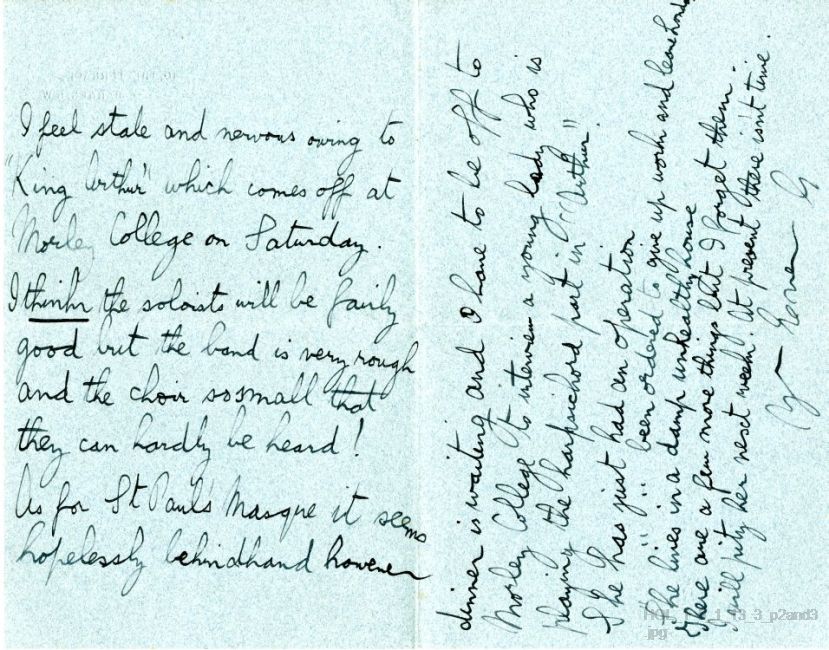 I feel stale and nervous owing to
"King Arthur" which comes off at
Morley College on Saturday.
I think the soloists will be fairly
good but the band is very rough
and the choir so small that
they can hardly be heard!
As for St Paul's Masque it seems
hopelessly behindhand however
dinner is waiting and I have to be off to
Morley College to interview a young lady who is
playing the harpsichord part in "K Arthur".
She has just had an operation
" " " been ordered to give up work and leave London
She lives in a damp unhealthy house
There are a few more things but I forget them.
I will pity her next week. At present there isn't time.
Yr
G
HOL
1_13_3_p2and3
jpg